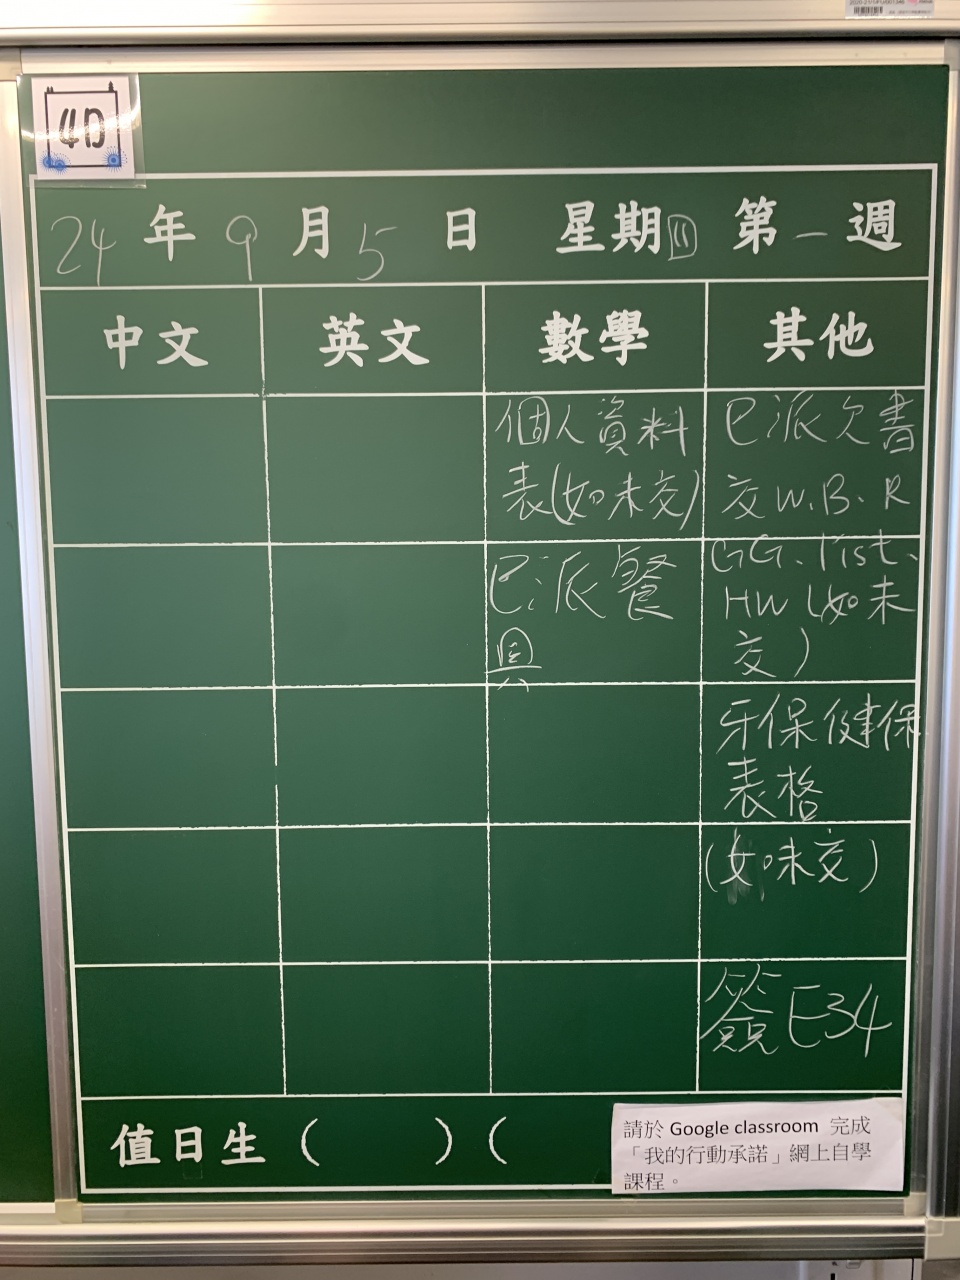 4D
24 年 9 月 5 日 星期四 第一週
中文 英文 數學 其他
個人資料
表(如未交)
已派餐
具
已派欠書
交 W.B. R
GG. list.
HW (如未
交)
牙保健保
表格
(如未交)
簽 E34
值日生 ( ) (
請於 Google classroom 完成
「我的行動承諾」網上自學
課程。